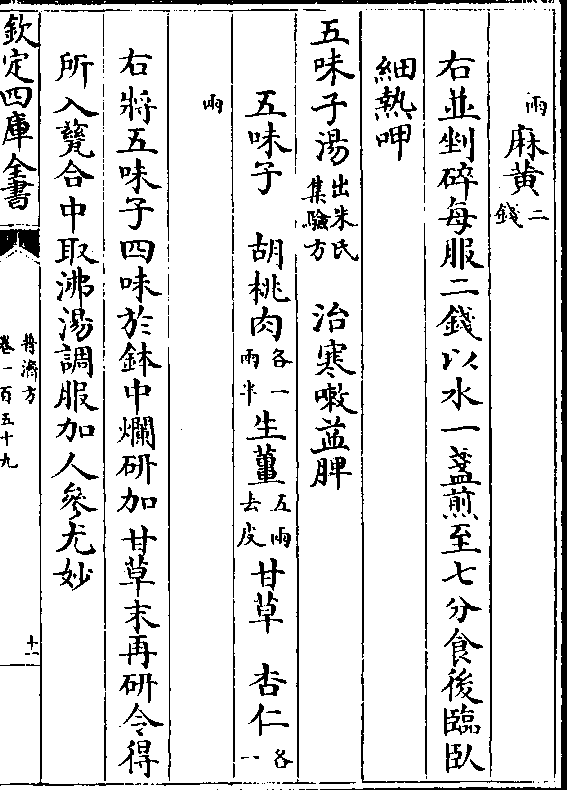 兩麻黄二錢
右並剉碎每服二錢以水一盞煎至七分食後臨臥
細熱呷
五味子湯出朱氏集驗方 治寒嗽益脾
五味子 胡桃肉各一兩半生薑五兩去皮甘草 杏仁各一
兩
右將五味子四味於鉢中爛研加甘草末再研令得
所入甆合中取沸湯調服加人參尤妙
欽定四庫全書
普濟方
卷一百五十九
十二